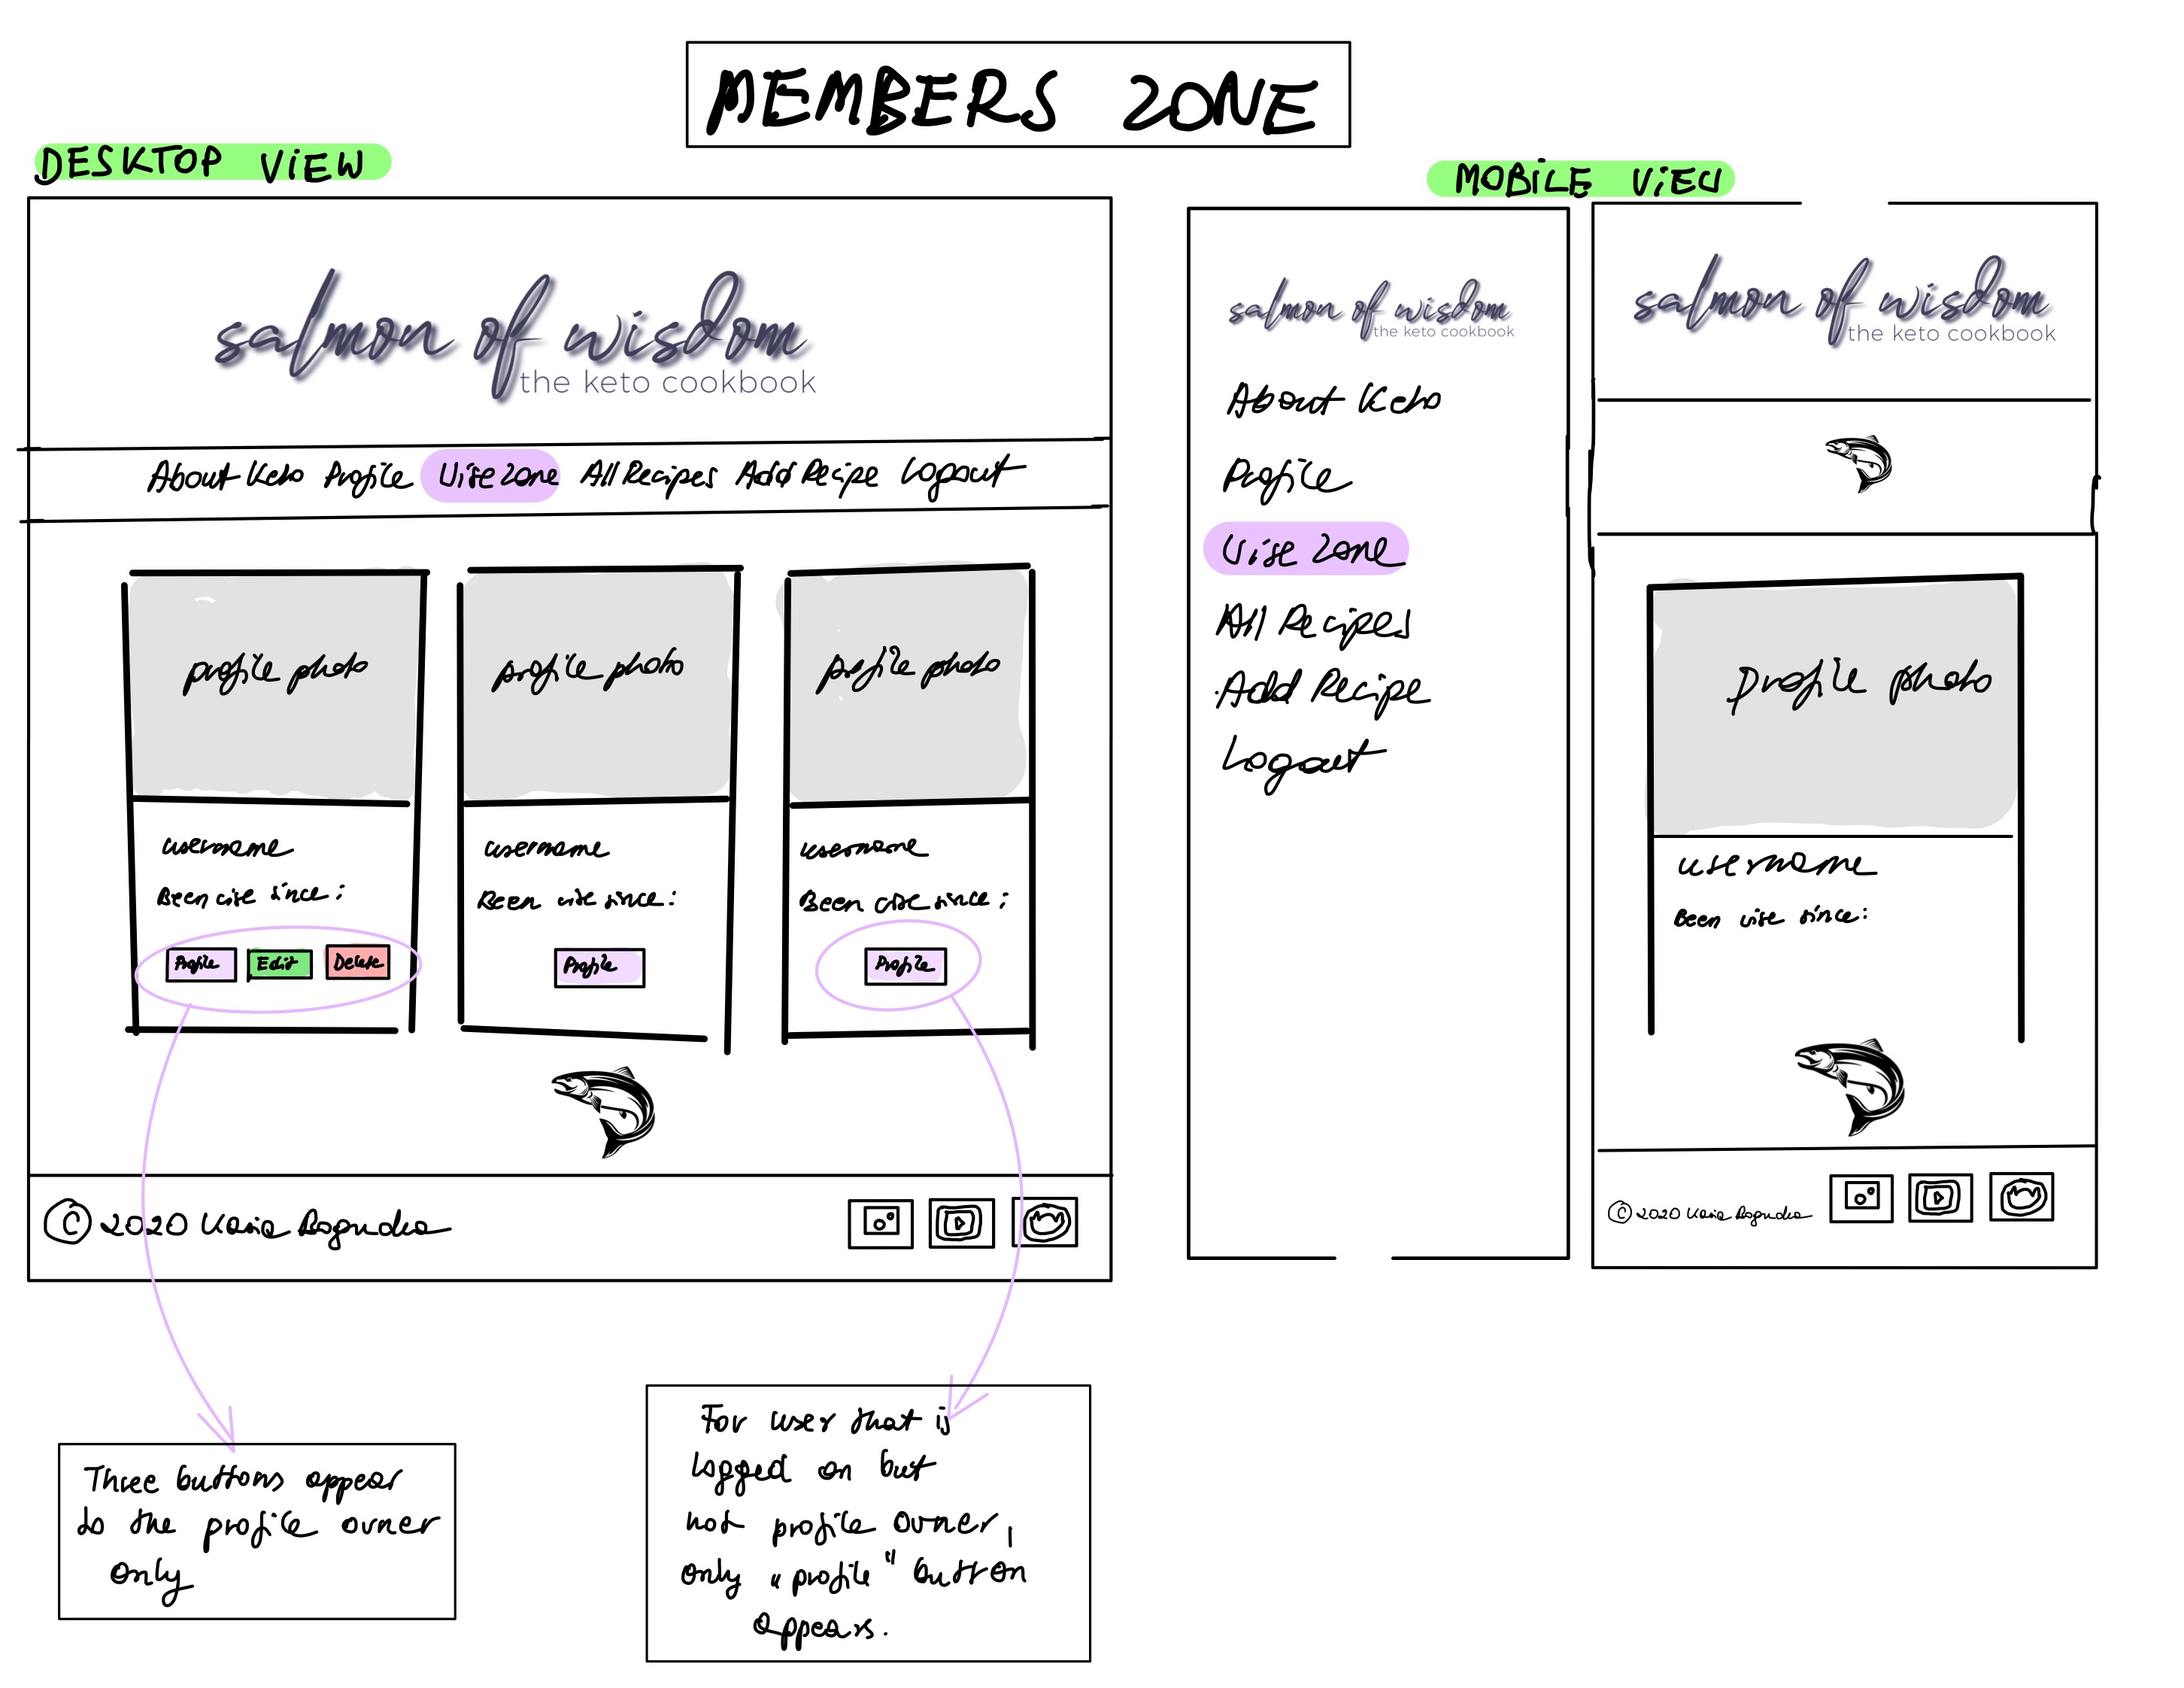 MEMBERS ZONE
DESKTOP VIEW
salmon of wisdom
the keto cookbook
About Keto Profile Wise Zone All Recipes Add Recipe Logout
profile photo
username
Been wise since:
Profile Edit Delete
profile photo
username
Been wise since:
Profile
profile photo
username
Been wise since:
Profile
© 2020 Kasia Bogucka
Three buttons appear
to the profile owner
only
For user that is
logged on but
not profile owner,
only "profile" button
appears.
MOBILE VIEW
salmon of wisdom
the keto cookbook
About Keto
Profile
Wise Zone
All Recipes
Add Recipe
Logout
salmon of wisdom
the keto cookbook
Profile photo
username
Been wise since:
© 2020 Kasia Bogucka